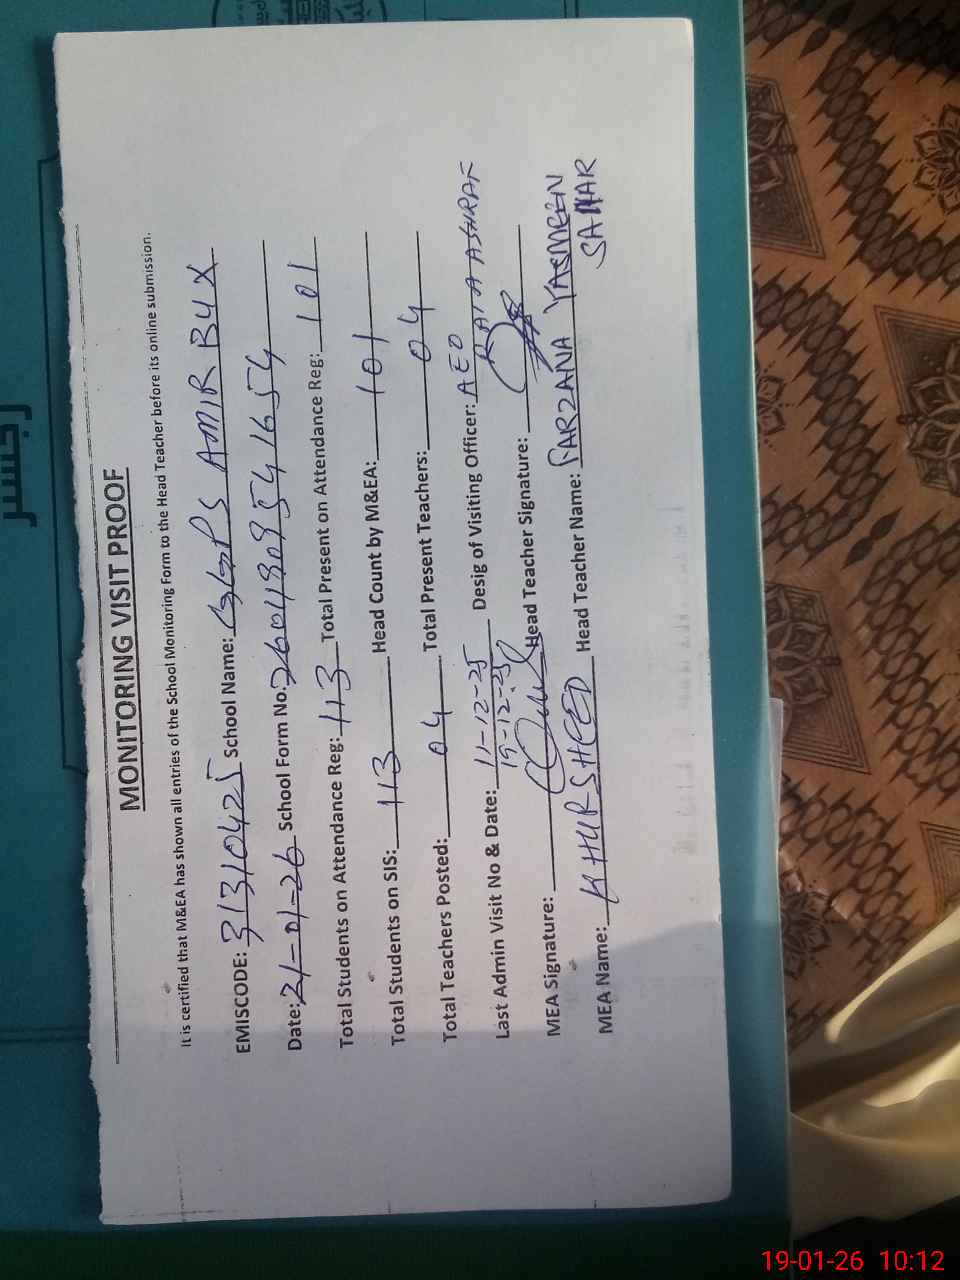 MONITORING VISIT PROOF
It is certified that M&EA has shown all entries of the School Monitoring Form to the Head Teacher before its online submission.
EMISCODE: 31310425 School Name: GGPS AMIR BUX
Date: 21-01-26 School Form No.
Total Students on Attendance Reg: 113 Total Present on Attendance Reg: 101
Total Students on SIS: 113 Head Count by M&EA: 101
Total Teachers Posted: 04 Total Present Teachers: 04
Last Admin Visit No & Date: 11-12-25 19-12-25 Desig of Visiting Officer: AEO RANA ASHRAF
MEA Signature: Head Teacher Signature:
MEA Name: KHURSHEED Head Teacher Name: FARZANA YASMEEN
رجسٹر
19-01-26 10:12